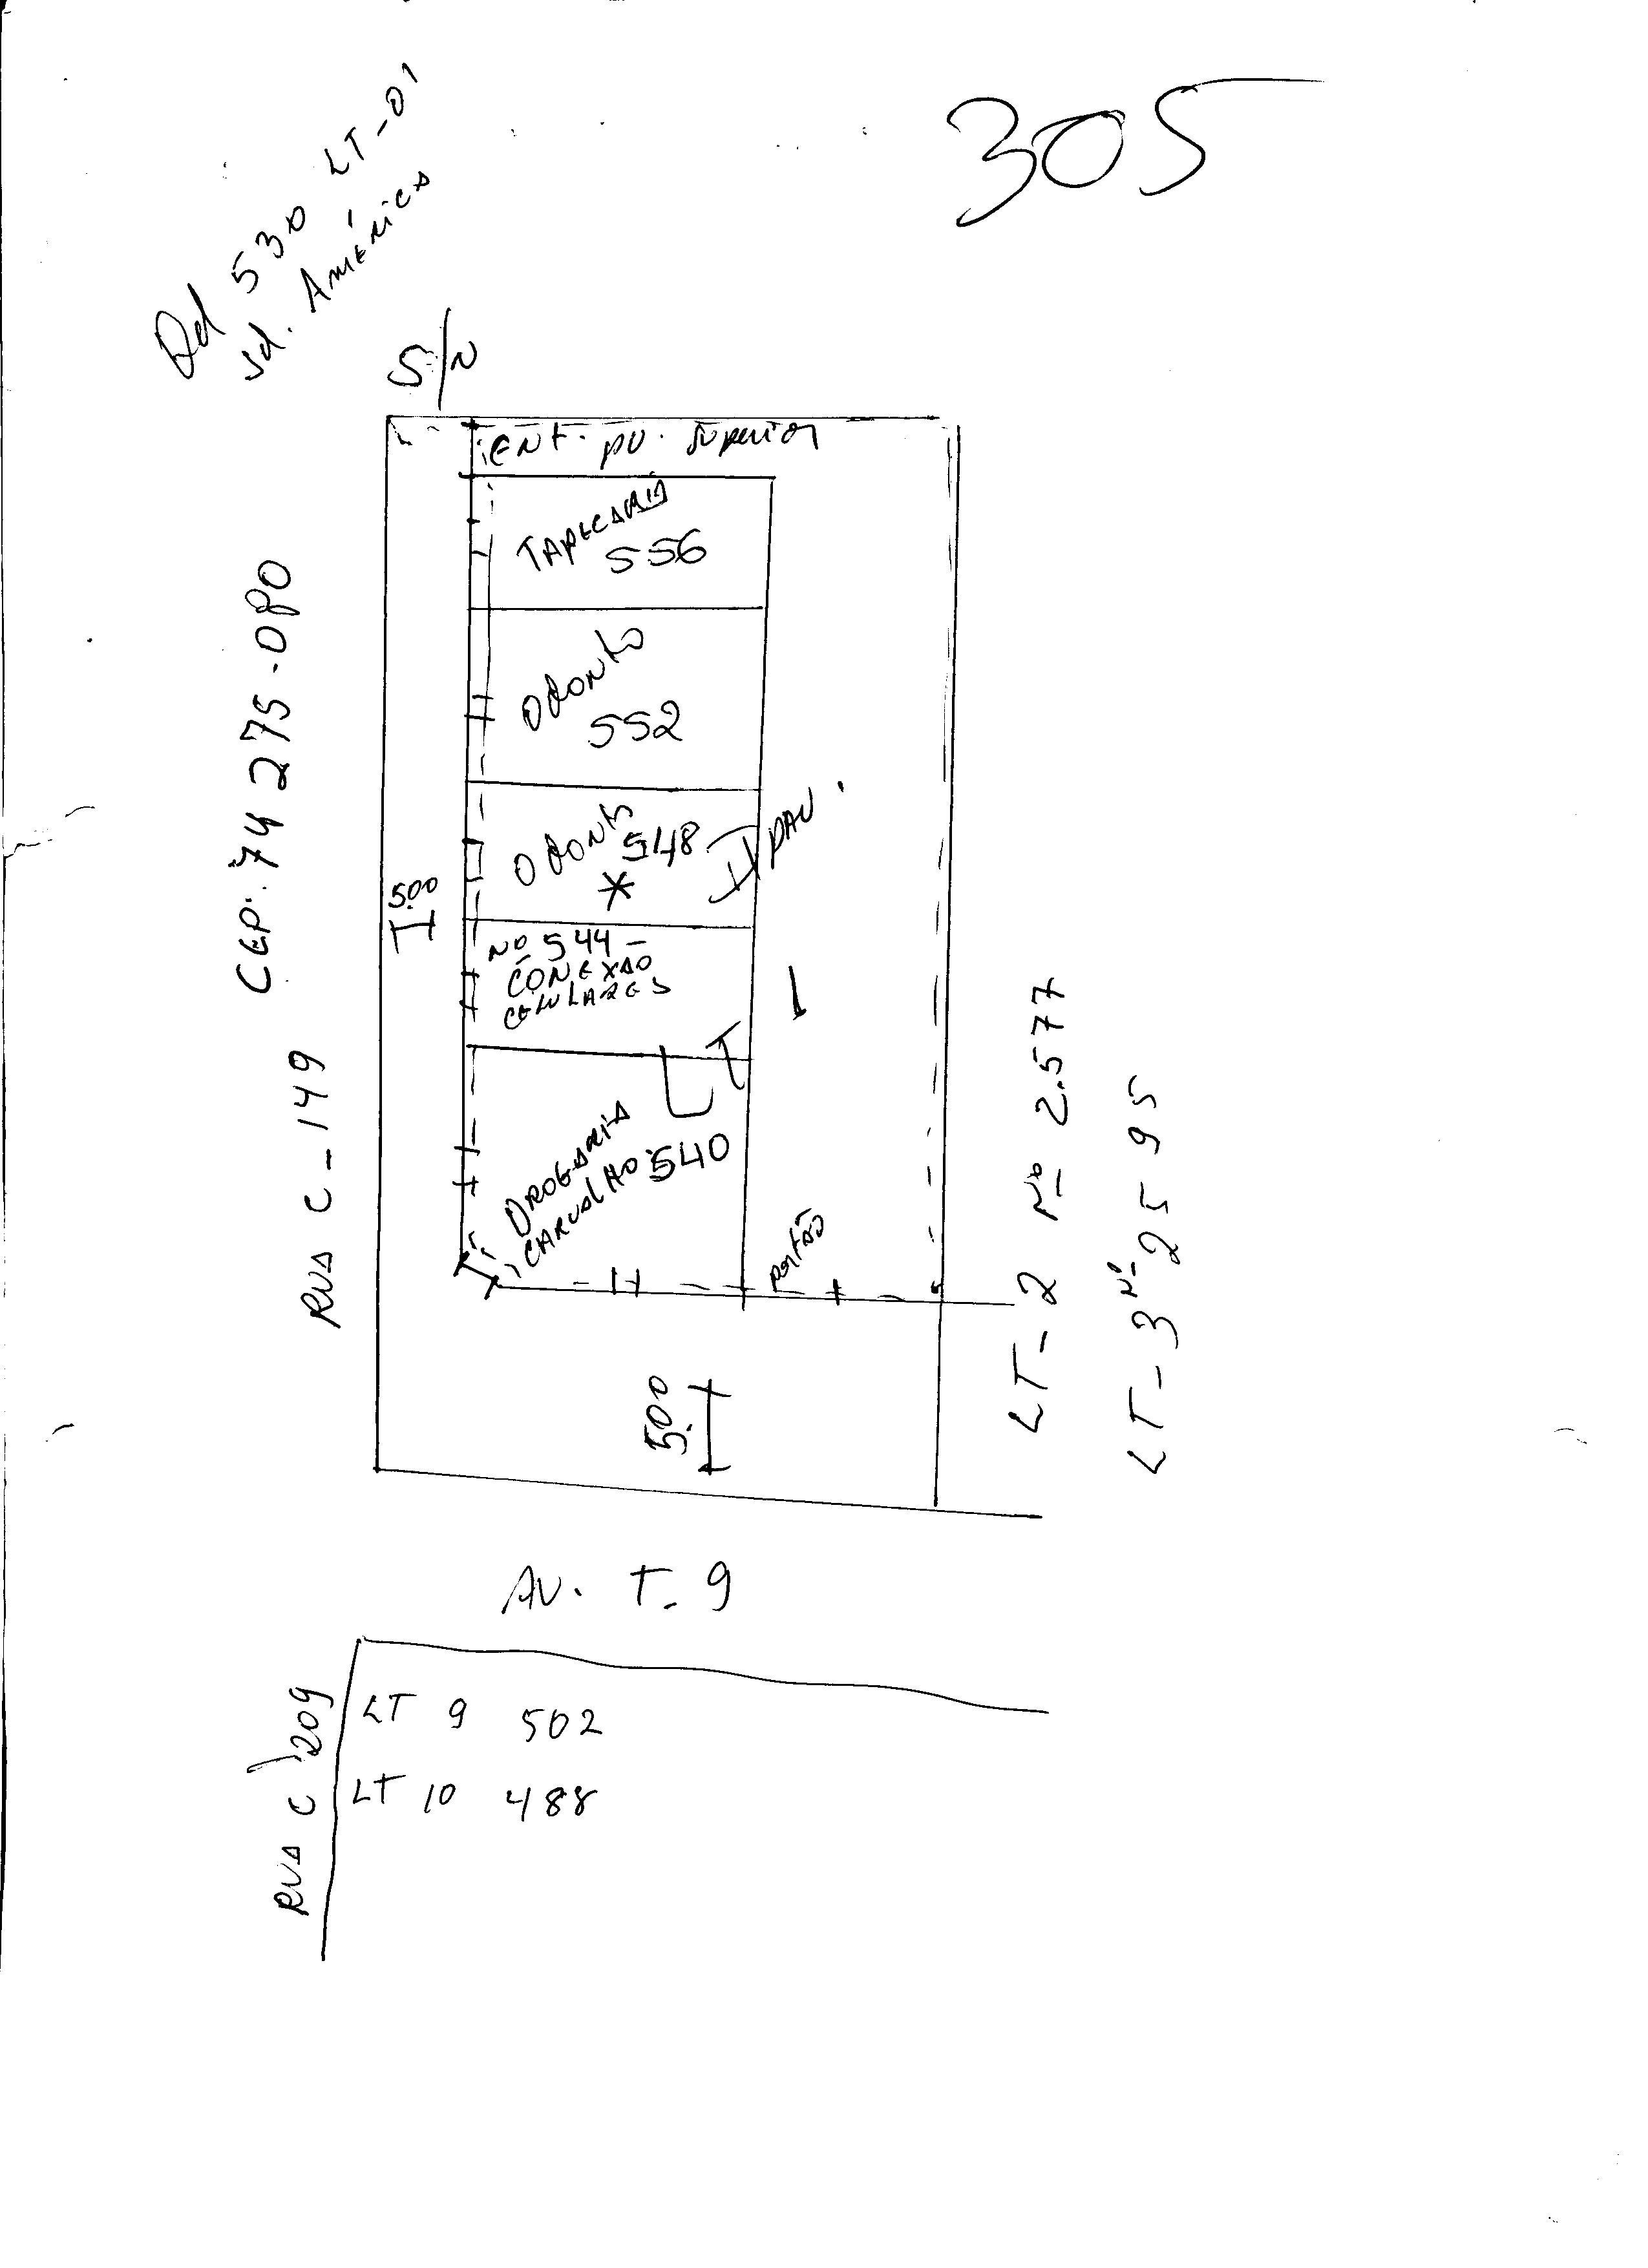 305
Qd 530 LT-01
Jd. América
S/N
ENt. pv. superior
TAPECARIA
556
Odonto
552
Odonto
548
*
II pav.
5.00
Nº 544 -
CONEXAO
CELULARES
DROGARIA
CARVALHO 540
portão
CEP. 74 275-080
RUA C-149
LT-2 Nº 2.577
LT-3 Nº 2595
5.00
AV. T-9
RUA C 209
LT 9 502
LT 10 488